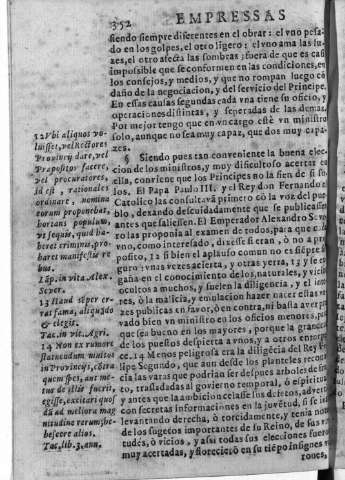 352 EMPRESSAS
siendo siempre diferentes en el obrar: el vno pesa-
do en los golpes, el otro ligero: el vno ama las lu-
zes, el otro afecta las sombras; fuera de que es casi
impossible que se conformen en las condiciones, en
los consejos, y medios, y que no rompan luego cõ
daño de la negociacion, y del servicio del Principe.
En essas causas segundas cada vna tiene su oficio, y
operaciones distintas, y separadas de las demas.
Por mejor tengo que en vn cargo estè vn ministro
solo, aunque no sea muy capaz, que dos muy capa-
zes.
§ Siendo pues tan conveniente la buena elec-
cion de los ministros, y muy dificultoso acertar en
ella, conviene que los Principes no la fien de si so-
los. El Papa Paulo III. y el Rey don Fernando el
Catolico las consultavã primero cõ la voz del pue-
blo, dexando descuidadamente que se publicassen
antes que saliessen. El Emperador Alexandro Seve-
ro las proponia al examen de todos, para que cada
vno, como interesado, dixesse si eran, ò no a pro-
posito, 12 si bien el aplauso comun no es siẽpre se-
guro: vnas vezes acierta, y otras yerra, 13 y se en-
gaña en el conocimiento de los naturales, y vicios
ocultos a muchos, y suelen la diligencia, y el inte-
res, ò la malicia, y emulacion hazer nacer estas vo-
zes publicas en favor, ò en contra, ni basta aver pro-
vado bien vn ministro en los oficios menores, para
que sea bueno en los mayores, porque la grandeza
de los puestos despierta a vnos, y a otros entorpe-
ce. 14 Menos peligrosa era la diligẽcia del Rey Fe-
lipe Segundo, que aun desde los planteles recono-
cia las varas que podrian ser despues arboles de fru-
to, trasladadas al govierno temporal, ò espiritual,
y antes que la ambicion celasse sus defetos, advertia
con secretas informaciones en la juventud, si se ivan
levantando derecha, ò torcidamente, y tenia notas
de los sugetos importantes de su Reino, de sus vir-
tudes, ò vicios, y assi todas sus elecciones fueron
muy acertadas, y florecierõ en su tiẽpo insignes va-
rones,
12 Vbi aliquos vo-
luisset, vel Rectores
Provincijs dare, vel
Præpositos facere,
vel procuratores,
id est, rationales
ordinare, nomina
eorum proponebat,
hortans populum,
vt siquis, quid ha-
beret criminis, pro-
baret manifestis re-
bus
Lãp. in vita Alex.
Sever.
13 Haud sẽper er-
rat fama, aliquãdo
& elegit.
Tac. in vit. Agri.
14 Non ex rumore
statuendum multos
in Provincijs, cõtra
quem spes, aut me-
tus de illis fuerit,
egisse, excitari quos
dã ad meliora mag
nitudine rerum, he-
bescere alios.
Tac. lib. 3. ann.